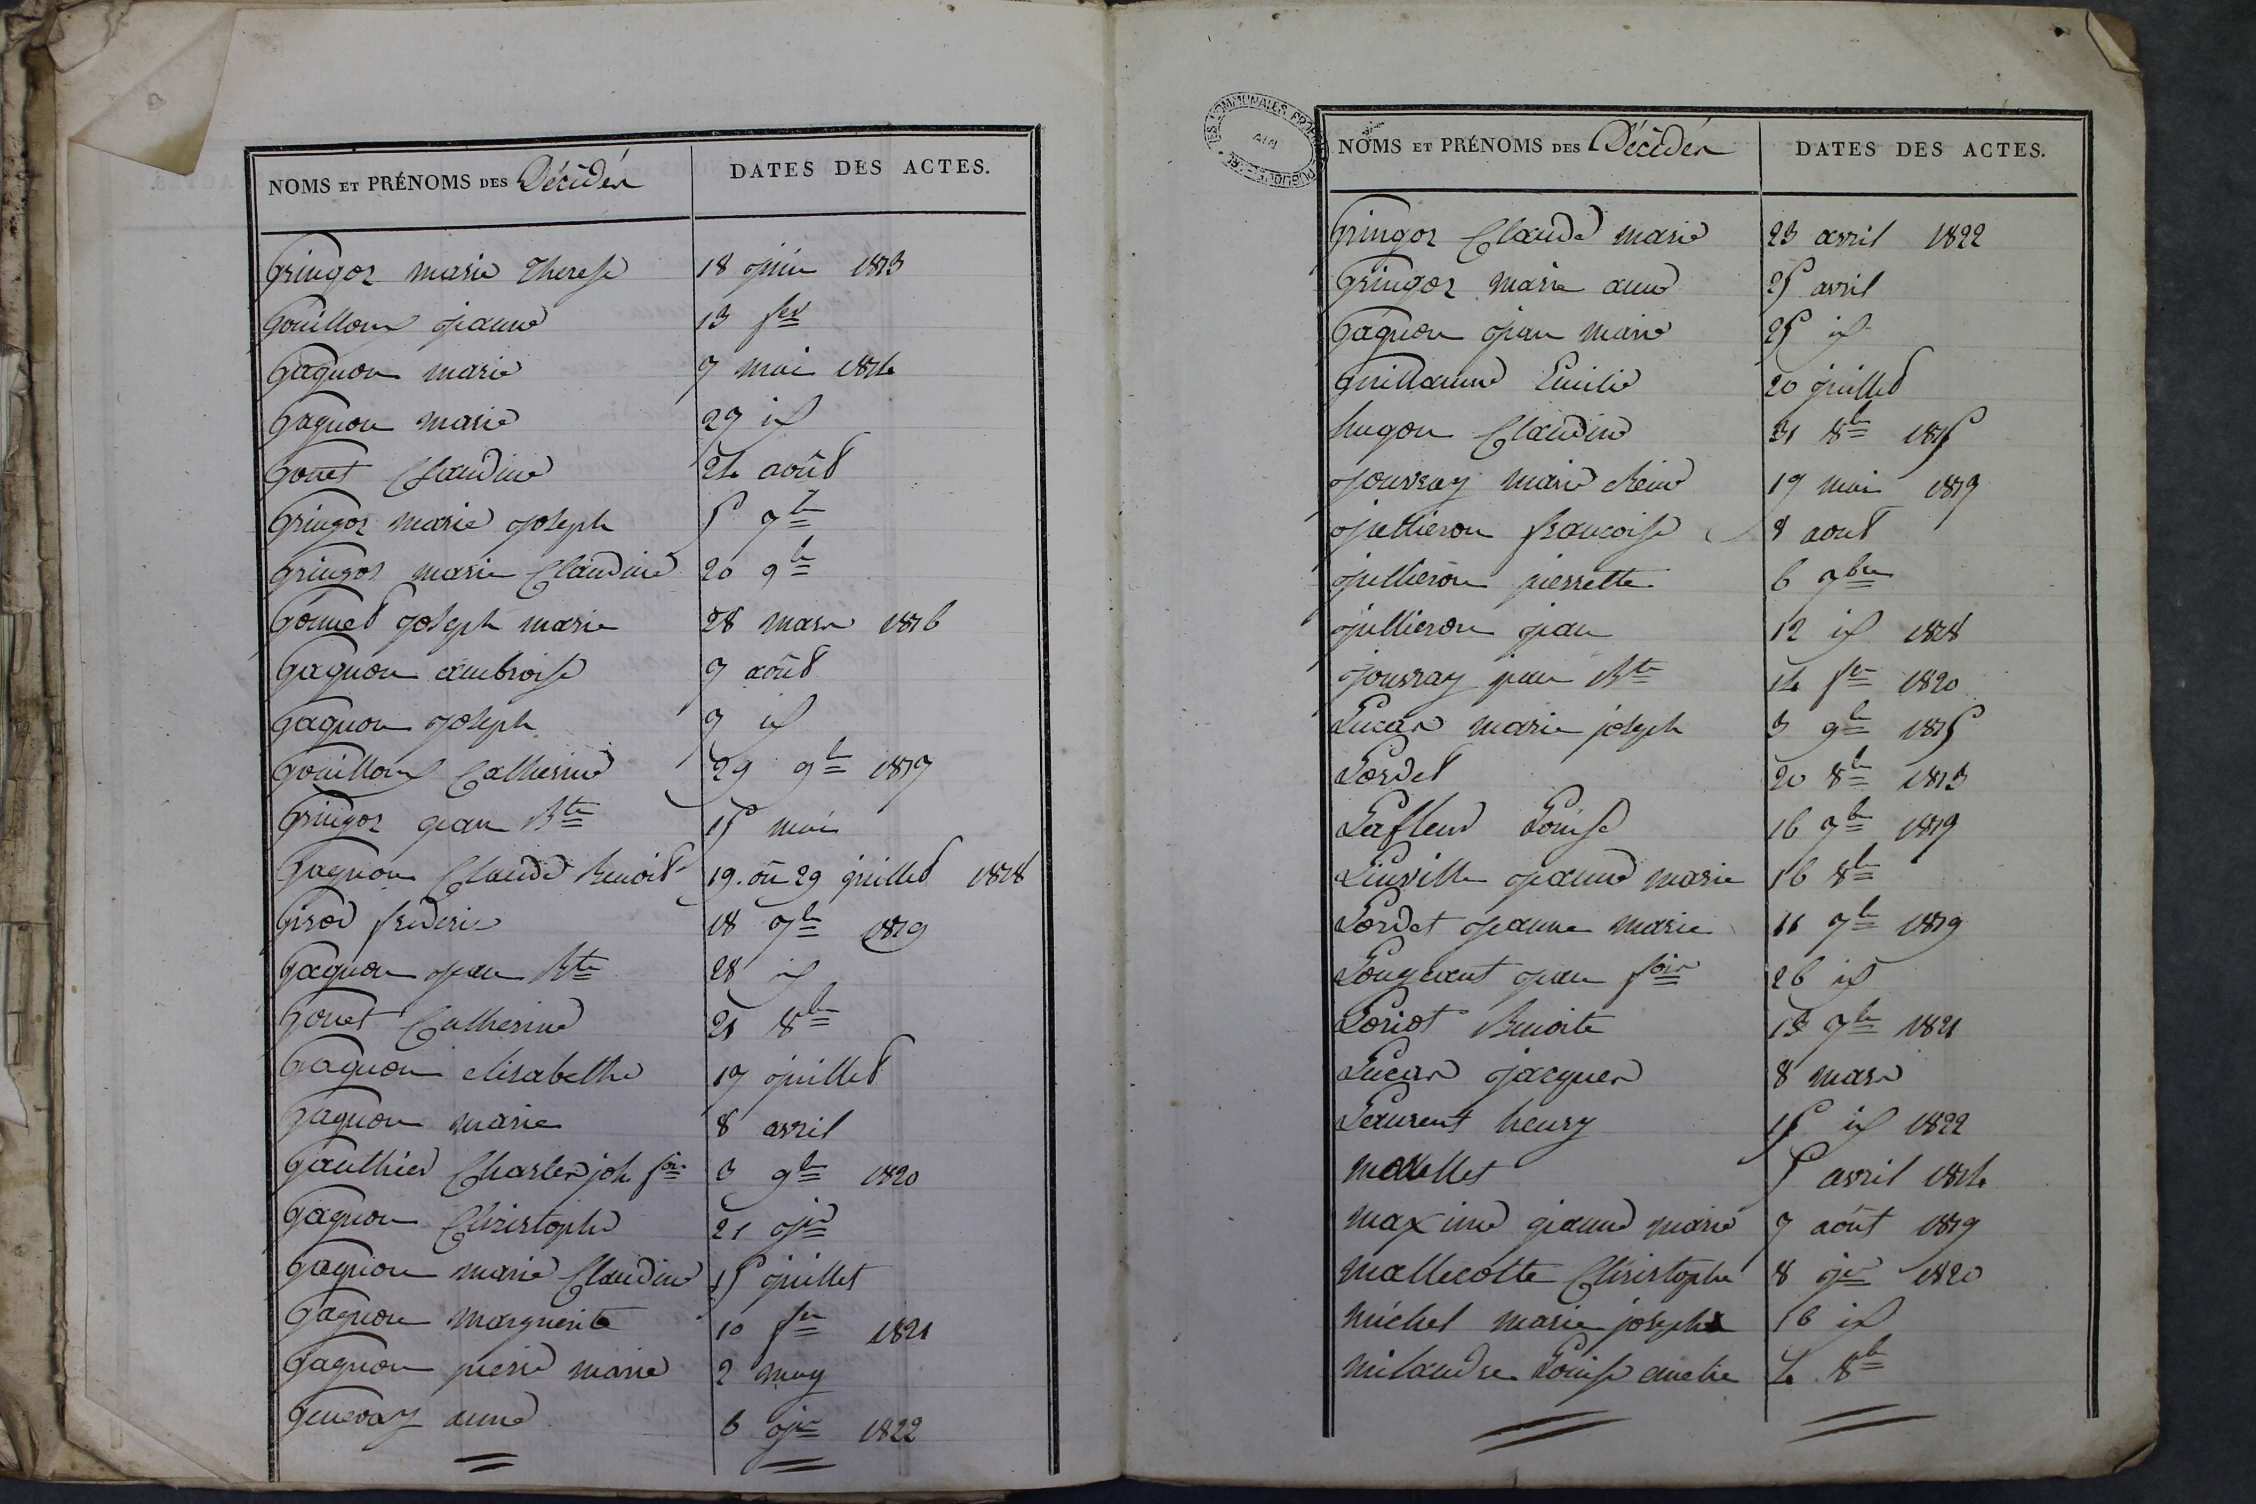 NOMS ET PRÉNOMS DES Décédés DATES DES ACTES.
Gringoz marie therese 18 juin 1813
Gouilloux jeanne 13 fer
Gagnon marie 7 mai 1814
Gagnon marie 27 id
Gouet Claudine 24 août
Gringoz marie joseph 5 7b
Gringoz marie Claudine 20 9b
Gonnet joseph marie 28 mars 1816
Gagnon ambroise 7 août
Gagnon joseph 7 id
Gouilloux Catherine 29 9b 1817
Gringoz jean Bte 15 mai
Gagnon Claude Benoit 19. ou 29 juillet 1818
Girod frederic 18 7b 1819
Gagnon jean Bte 28 id
Gouet Catherine 21 8b
Gagnon elisabethe 17 juillet
Gagnon marie 8 avril
Gauthier Charles joh. fois 3 9b 1820
Gagnon Christophe 21 jer
Gagnon marie Claudine 15 juillet
Gagnon marguerite 10 fer 1821
Gagnon pierre marie 2 may
Genevay anne 6 jer 1822
NOMS ET PRÉNOMS DES Décédés DATES DES ACTES.
Gringoz Claude marie 23 avril 1822
Gringoz marie anne 25 avril
Gagnon jean marie 25 id
Guillaume Emilie 20 juillet
hugon Claudine 31 8b 1815
jouvray marie Reine 19 mai 1819
jullieron francoise 8 aout
jullieron pierrette 6 7bre
jullieron jean 12 id 1818
jouvray jean Bte 14 fer 1820
Lucas marie joseph 3 9b 1815
Lordet 20 8b 1813
Lafleur Louise 16 7b 1819
Linville jeanne marie 16 8b
Lordet jeanne marie 11 7b 1819
Longeant jean fois 26 id
Loriot Benoite 13 7b 1821
Lucas jacques 8 mars
Laurent henry 15 id 1822
morellet 5 avril 1814
maxime jeanne marie 7 août 1819
mallecotte Christophe 8 jer 1820
michel marie joseph 16 id
milandre Louise amelie 4 8b